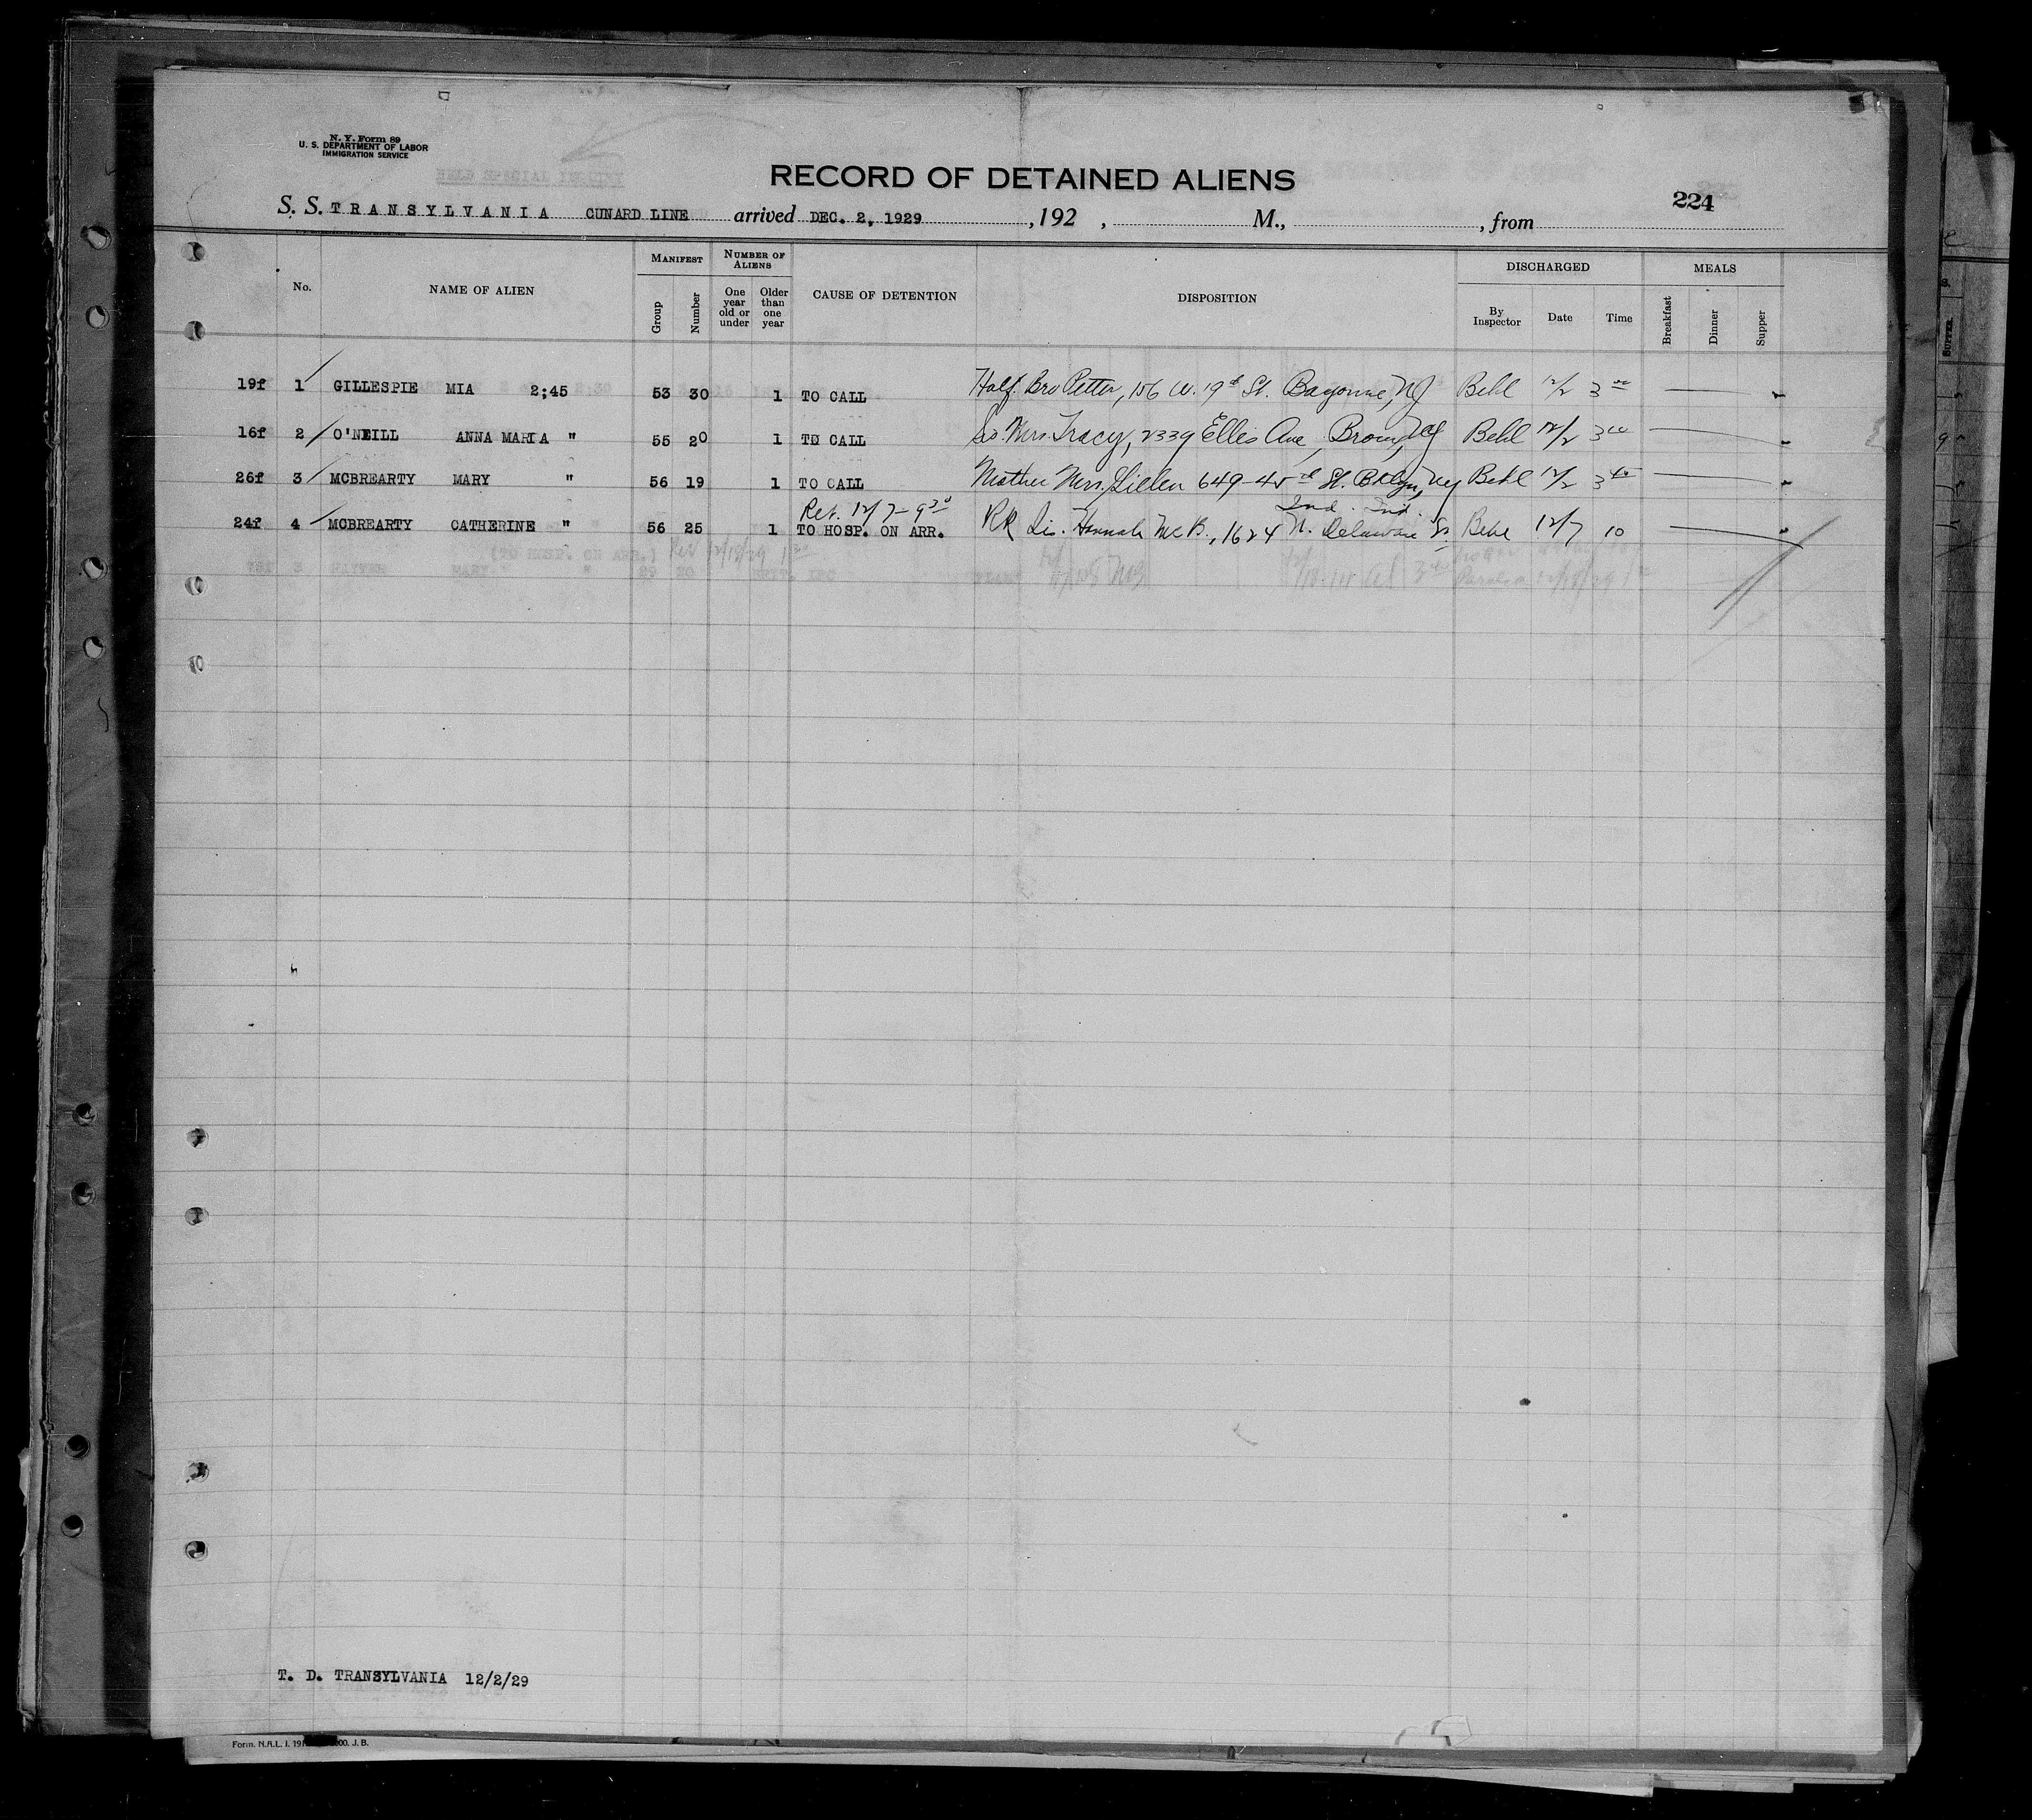 N. Y. Form 89
U. S. DEPARTMENT OF LABOR
IMMIGRATION SERVICE
HELD SPECIAL INQUIRY
RECORD OF DETAINED ALIENS
224
S. S. TRANSYLVANIA CUNARD LINE arrived DEC. 2, 1929 , 192 , M., , from
No. NAME OF ALIEN MANIFEST NUMBER OF ALIENS CAUSE OF DETENTION DISPOSITION DISCHARGED MEALS
Group Number One year old or under Older than one year By Inspector Date Time Breakfast Dinner Supper
19f 1 GILLESPIE MIA 2;45 53 30 1 TO CALL Half. Bro Petter, 156 W. 19th St. Bayonne, NJ Behl 12/2 3 00
16f 2 O'NEILL ANNA MARIA " 55 20 1 TO CALL Sis. Mrs. Tracy, 2339 Ellis Ave, Bronx, NY Behl 12/2 3
26f 3 MCBREARTY MARY " 56 19 1 TO CALL Mother Mrs. 649-4 St. Bklyn, NY Behl 12/2 3 40
Ret. 12/7-9 30 Ind. Ind.
24f 4 MCBREARTY CATHERINE " 56 25 1 TO HOSP. ON ARR. RR Sis. Hannah McB., 1624 N. Delaware St. Behl 12/7 10
(TO HOSP. ON ARR.) Ret 12/18/29
MARY " 29 20
T. D. TRANSYLVANIA 12/2/29
Form. N.A.L. I. 00. J. B.